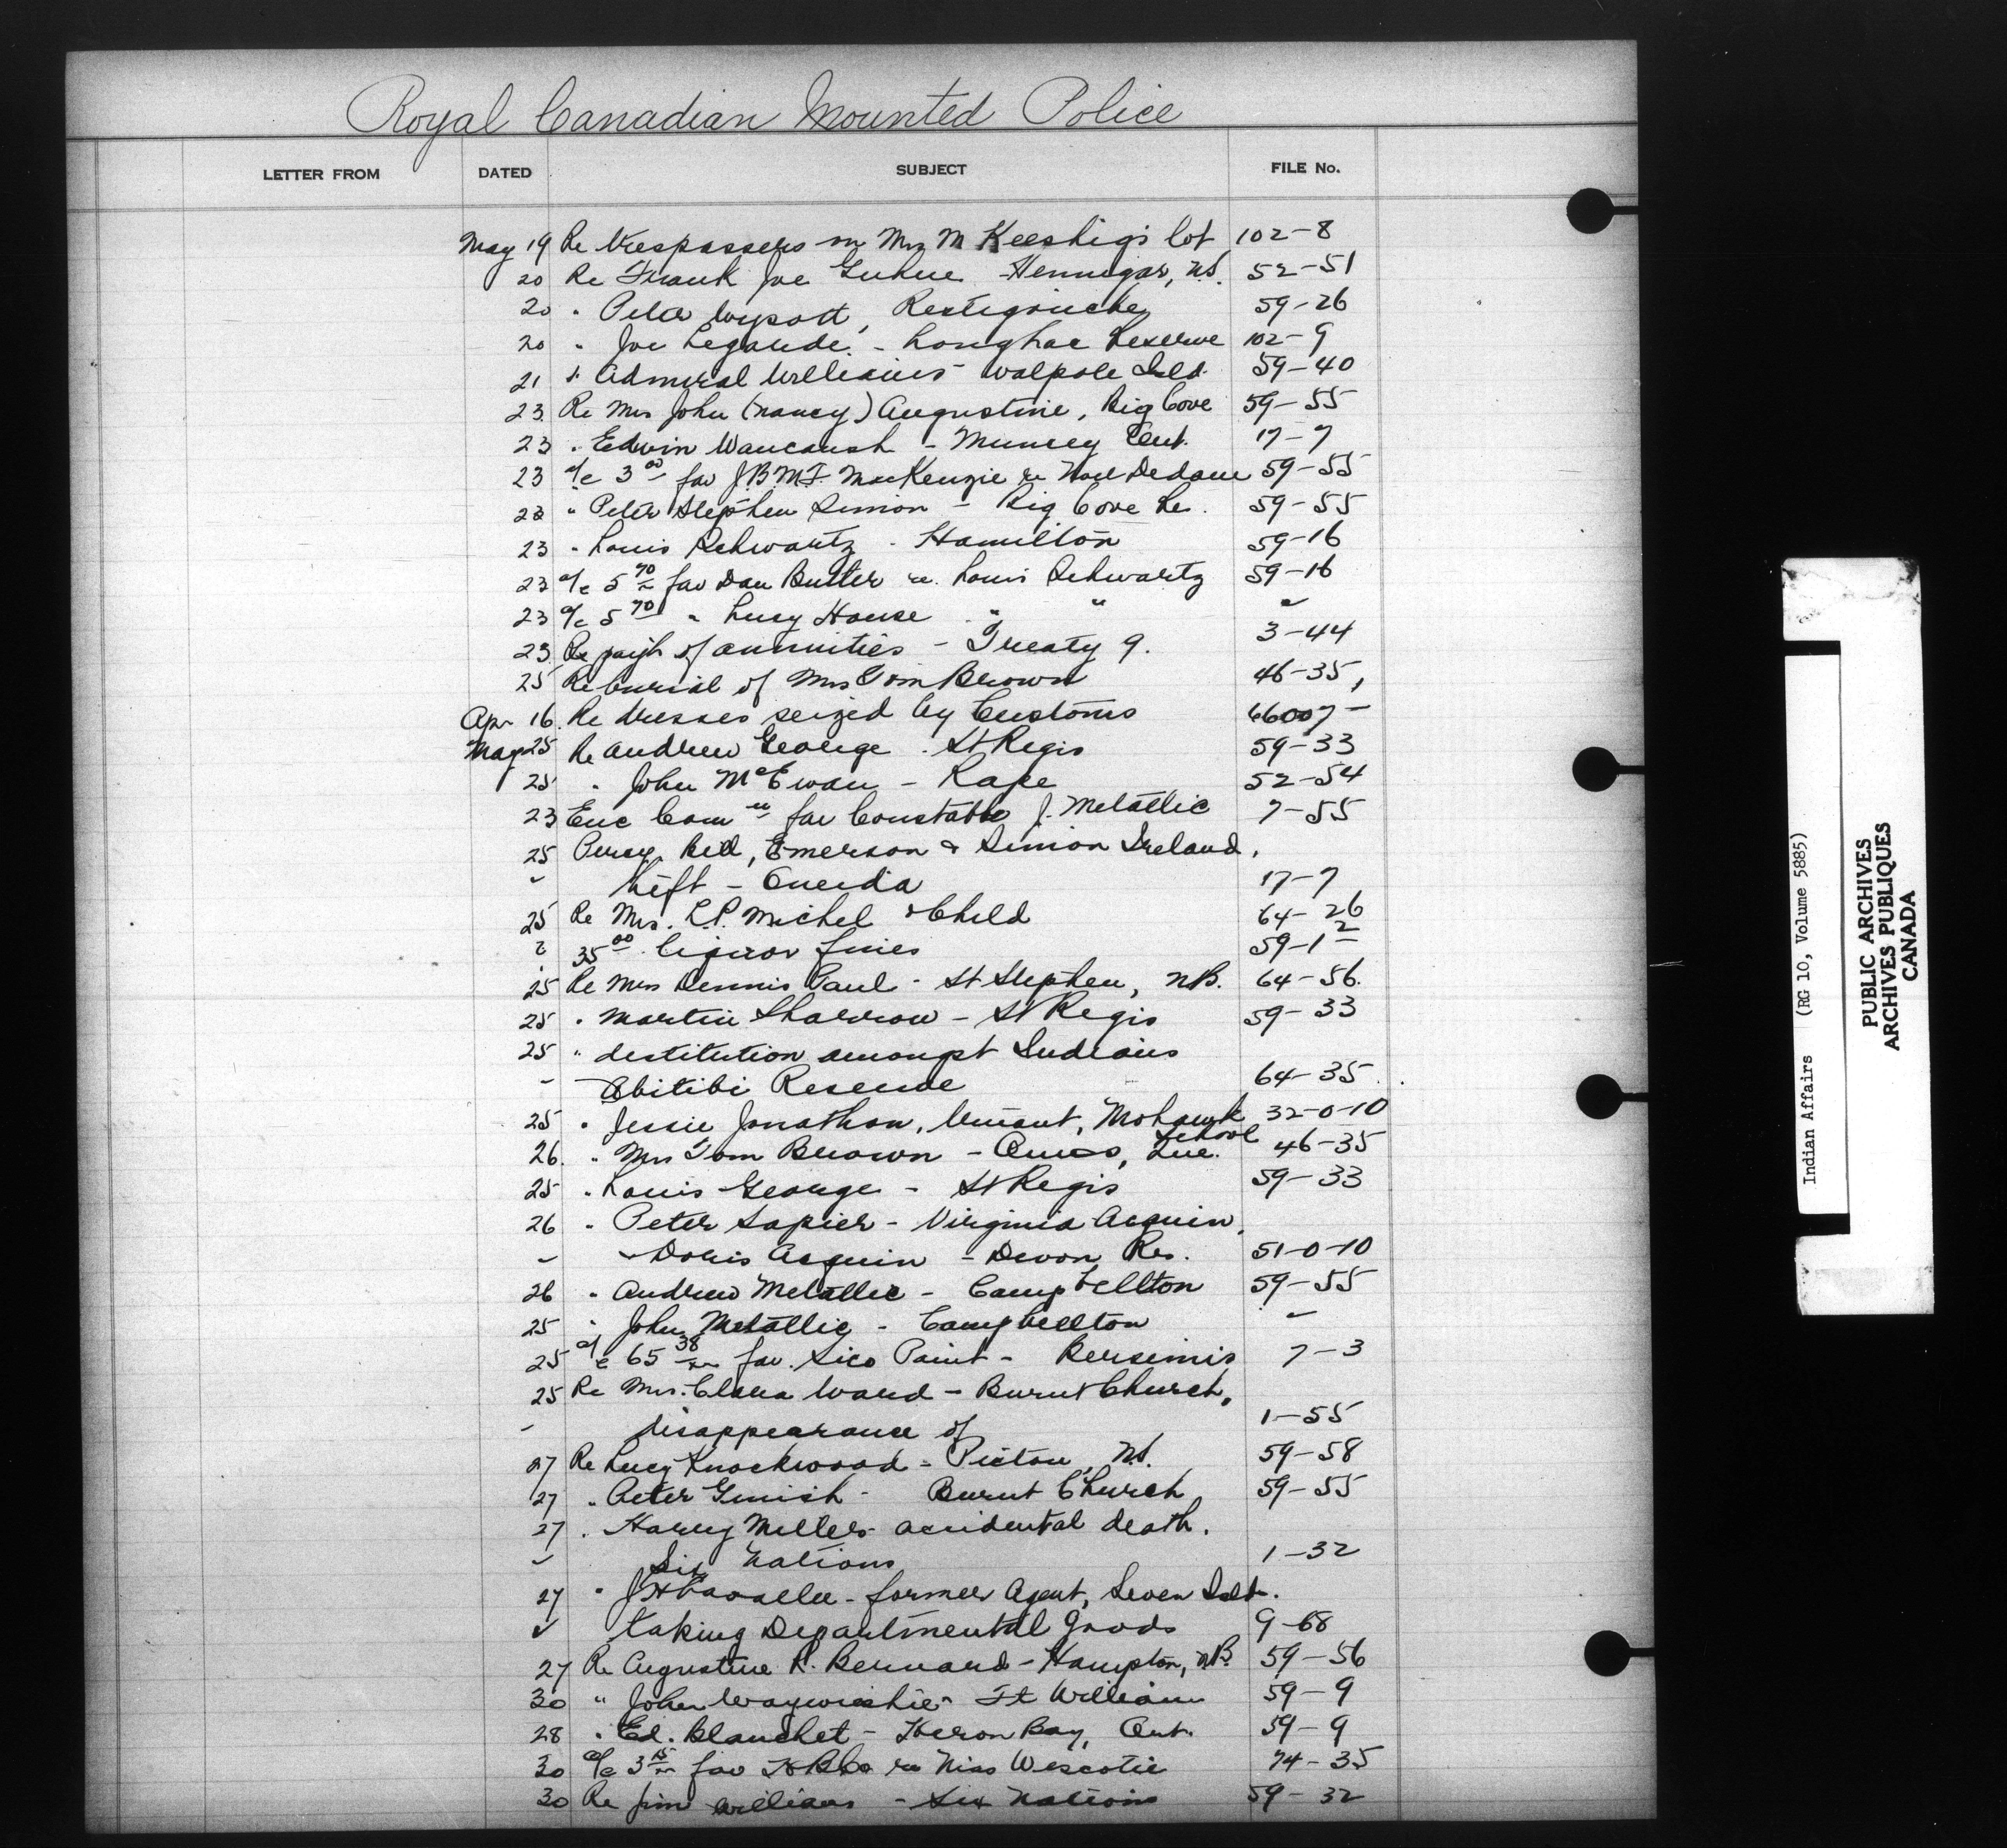 Royal Canadian Mounted Police
LETTER FROM DATED SUBJECT FILE No.
May 19 Re trespassers on Mrs M Keeshig's lot 102-8
20 Re Frank Joe Hennigar, N.S. 52-51
20 " Peter Wysott, Restigouche 59-26
20 " Joe Legarde - Longlac Reserve 102-9
21 " Admiral Williams - Walpole Isld. 59-40
23 Re Mrs John (Nancy) Augustine, Big Cove 59-55
23 " Edwin Waucaush - Muncey Ont. 17-7
23 a/c 3 00 fav J.B.M.F. MacKenzie re Noel Dedam 59-55
23 " Peter Stephen Simon - Big Cove Re. 59-55
23 " Louis Schwartz - Hamilton 59-16
23 a/c 5 70 fav Dan Butler re. Louis Schwartz 59-16
23 a/c 5 70 " Lucy House " " "
23 Re payt of annuities - Treaty 9. 3-44
25 Re burial of Mrs Tom Brown 46-35,
Apr 16 Re dresses seized by Customs 66007-
May 25 Re Andrew George - St Regis 59-33
25 " John McEwan - Rape 52-54
23 Enc Com n fav Constable J. Metallic 7-55
25 Percy Bell, Emerson & Simion Ireland,
" theft - Oneida 17-7
25 Re Mrs. L.P. Michel & Child 64-26
" 35 00 liquor fines 59-1-2
25 Re Mrs Dennis Paul - St Stephen, N.B. 64-56.
25 " Martin Sharrow - St Regis 59-33
25 " destitution amongst Indians
- Abitibi Reserve 64-35
25 " Jessie Jonathan, truant, Mohawk School 32-0-10
26. " Mrs Tom Brown - Amos, Que. 46-35
25 " Louis George - St Regis 59-33
26 " Peter Sapier - Virginia Acquin,
" Doris Acquin - Devon Res. 51-0-10
26 " Andrew Metallic - Campbellton 59-55
25 " John Metallic - Campbellton "
25 a/c 65 38 fav. Sico Paint - Bersimis 7-3
25 Re Mrs. Clara Ward - Burnt Church,
- disappearance of 1-55
27 Re Lucy Knockwood - Pictou, N.S. 59-58
27 " Peter Ginish - Burnt Church 59-55
27 " Harry Miller - accidental death.
" Six Nations 1-32
27 " J - former Agent, Seven Islds.
" taking Departmental Goods 9-68
27 Re Augustine R. Bernard - Hampton, N.B. 59-56
30 " John - Ft William 59-9
28 " Ed. Blanchet - Heron Bay, Ont. 59-9
30 a/c 3 15 fav H B Co re Miss Wescotie 74-35
30 Re Jim Williams - Six Nations 59-32
Indian Affairs (RG 10, Volume 5885)
PUBLIC ARCHIVES
ARCHIVES PUBLIQUES
CANADA